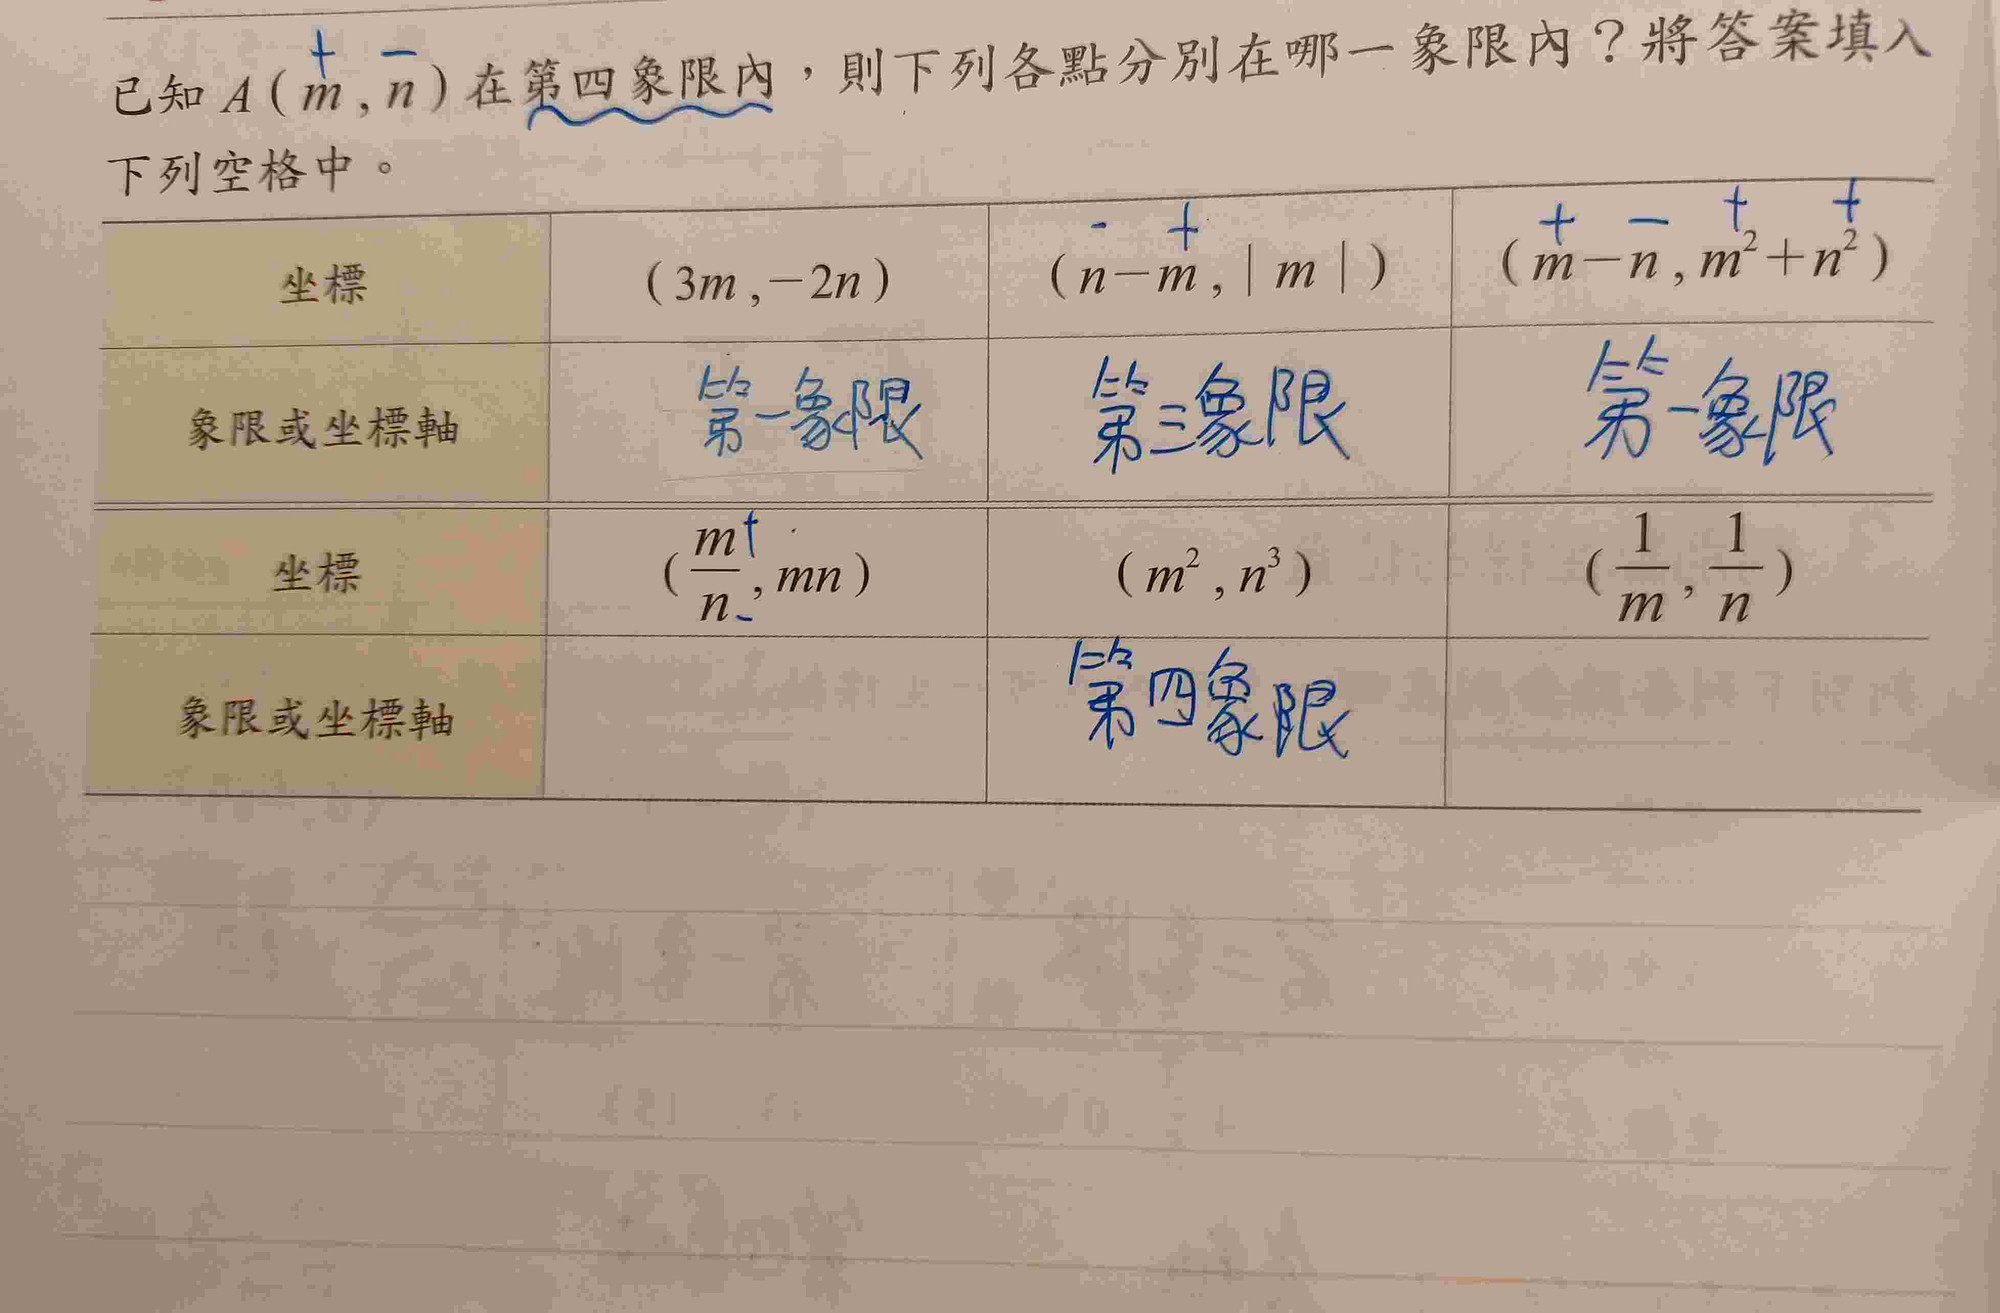 + −
已知 A ( m , n ) 在第四象限內，則下列各點分別在哪一象限內？將答案填入
下列空格中。
- + + − + +
坐標 ( 3m , −2n ) ( n−m , | m | ) ( m−n , m²+n² )
象限或坐標軸 第一象限 第三象限 第一象限
坐標 ( m/n , mn ) ( m² , n³ ) ( 1/m , 1/n )
+
-
象限或坐標軸 第四象限